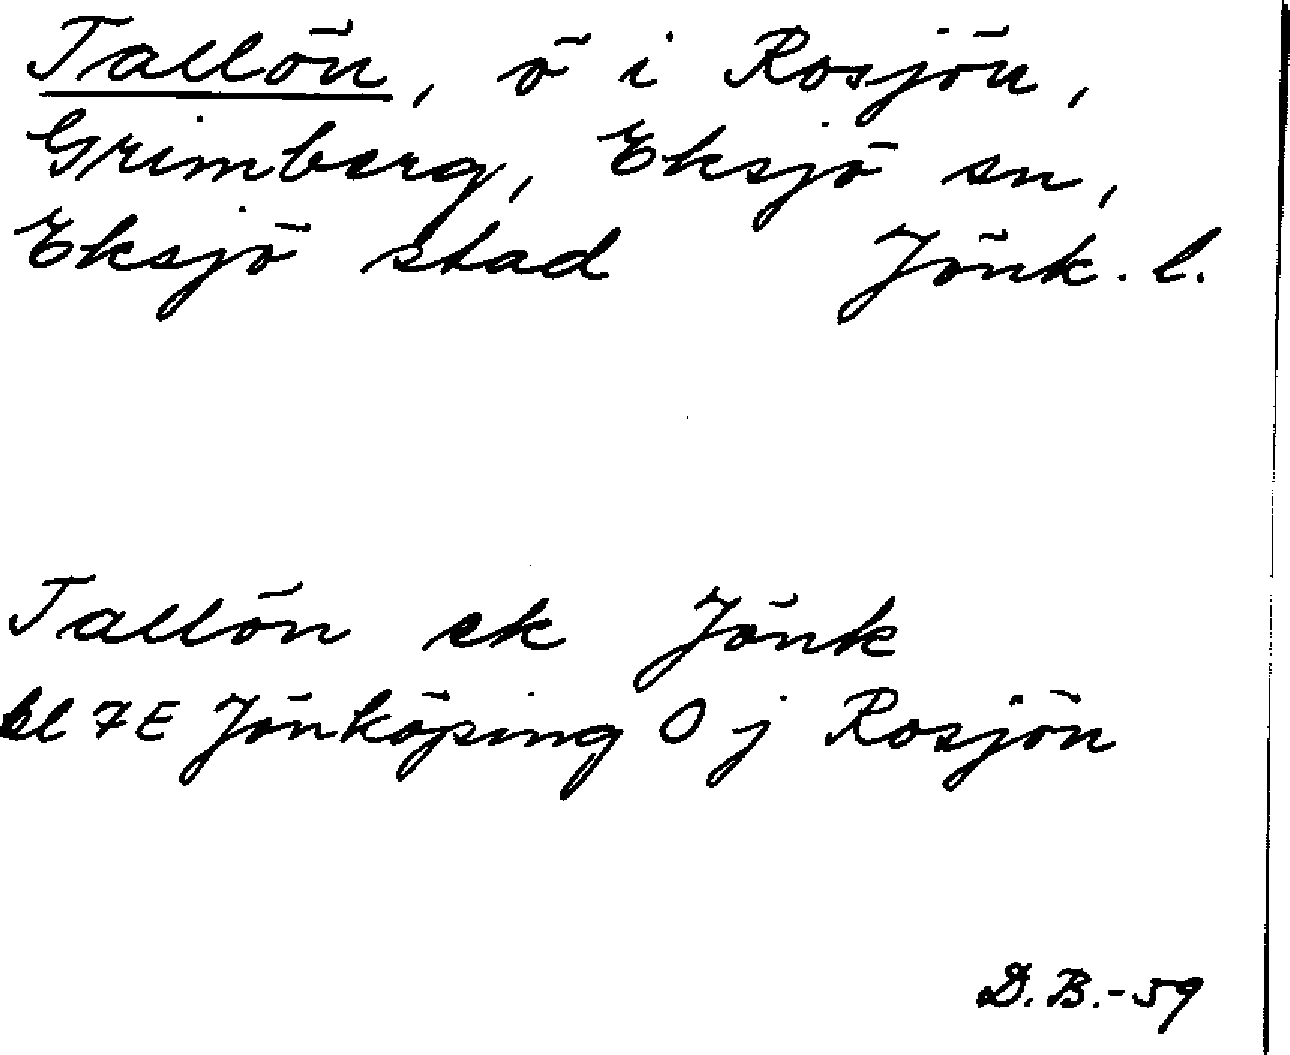 Tallön, ö i Rosjön,
Grimberg, Eksjö sn,
Eksjö stad Jönk. l.
Tallön ek Jönk
bl 7E Jönköping O j Rosjön
D.B.-59